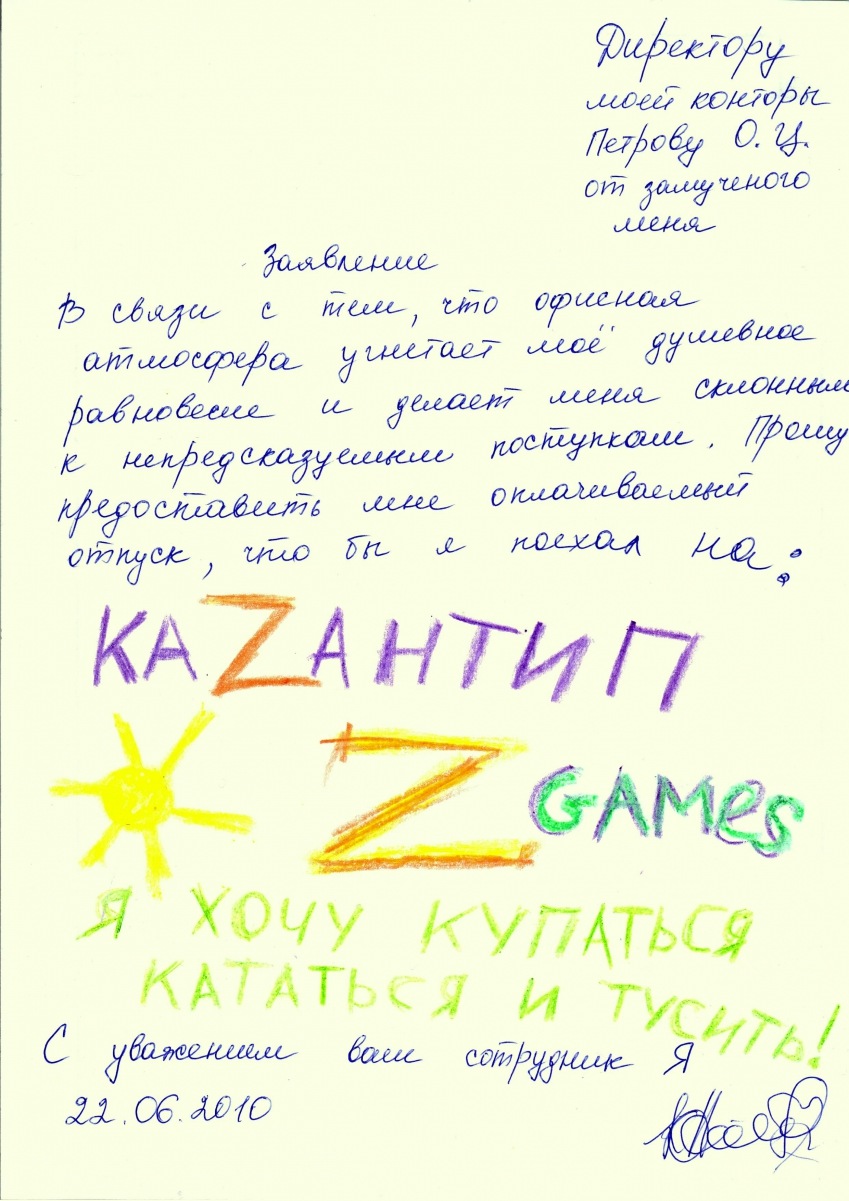 Директору
моей конторы
Петрову О.Ц.
от замученого
меня
Заявление
В связи с тем, что офисная
атмосфера угнетает моё душевное
равновесие и делает меня склонным
к непредсказуемым поступкам. Прошу
предоставить мне оплачиваемый
отпуск, что бы я поехал на:
КАZАНТИП
Z GAMes
Я ХОЧУ КУПАТЬСЯ
КАТАТЬСЯ И ТУСИТЬ!
С уважением ваш сотрудник Я
22.06.2010